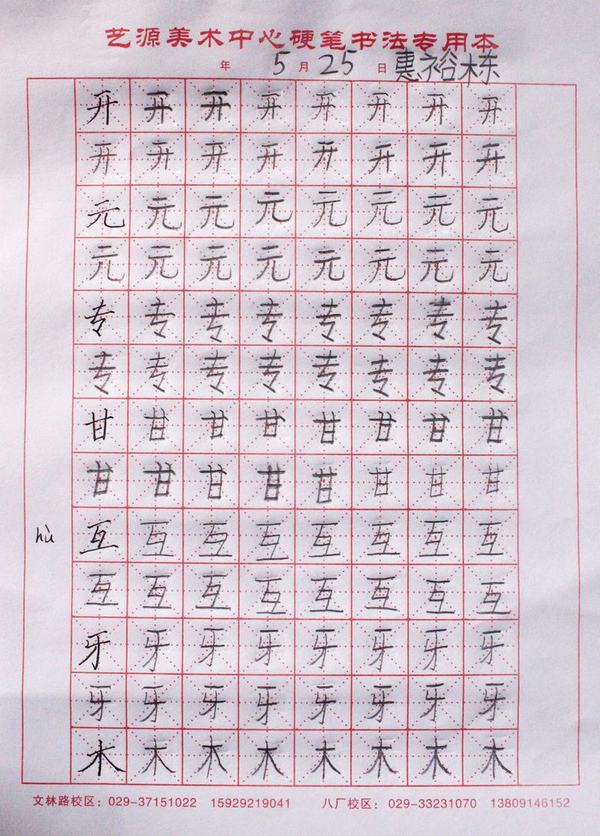 艺源美术中心硬笔书法专用本
年 5 月 25 日 惠裕栋
开 开 开 开 开 开 开 开
开 开 开 开 开 开 开 开
元 元 元 元 元 元 元 元
元 元 元 元 元 元 元 元
专 专 专 专 专 专 专 专
专 专 专 专 专 专 专 专
甘 甘 甘 甘 甘 甘 甘 甘
甘 甘 甘 甘 甘 甘 甘 甘
hù 互 互 互 互 互 互 互 互
互 互 互 互 互 互 互 互
牙 牙 牙 牙 牙 牙 牙 牙
牙 牙 牙 牙 牙 牙 牙 牙
木 木 木 木 木 木 木 木
文林路校区：029-37151022 15929219041 八厂校区：029-33231070 13809146152